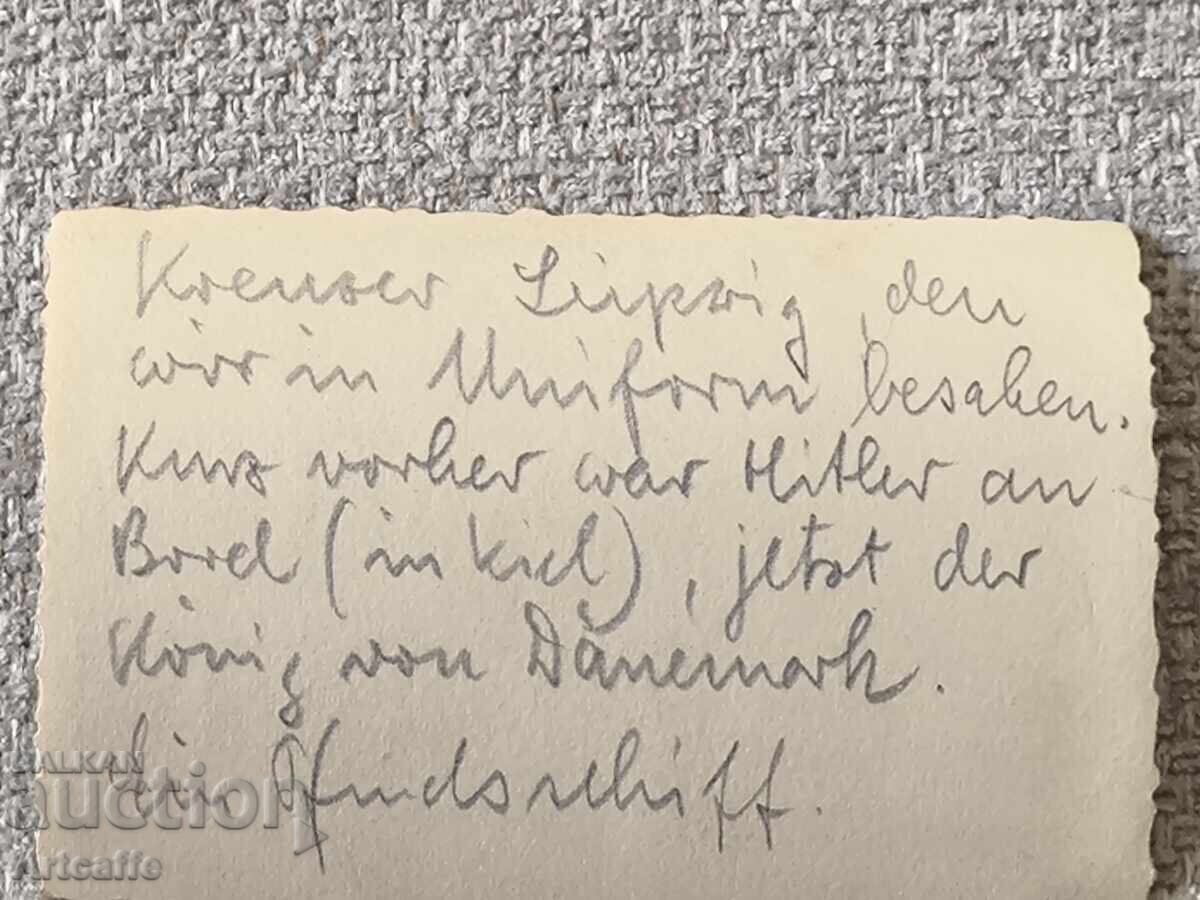 Kreuzer Leipzig, den
wir in Uniform besahen.
Kurz vorher war Hitler an
Bord (in Kiel), jetzt der
König von Dänemark.
Ein Pfundsschiff.
BALKAN
auction
Artcaffe